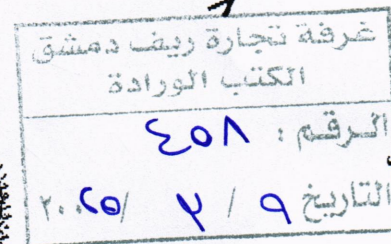 غرفة تجارة ريف دمشق
الكتب الورادة
الرقم : ٤٥٨
التاريخ ٩ / ٢ / ٢٠٠٢٥